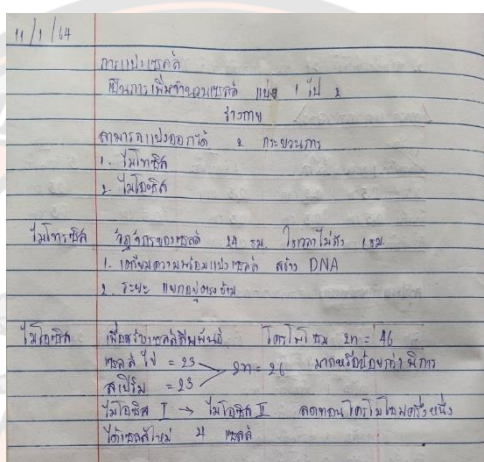 11/1/64
การแบ่งเซลล์
เป็นการเพิ่มจำนวนเซลล์ แบ่ง 1 เป็น 2
ร่างกาย
สามารถแบ่งออกได้ 2 กระบวนการ
1. ไมโทซิส
2. ไมโอซิส
ไมโทรซิส วัฏจักรของเซลล์ 24 ชม. ใช้เวลาไม่ถึง 1 ชม
1. เตรียมความพร้อมแบ่งเซลล์ สร้าง DNA
2. ระยะ แยกอยู่ตรงข้าม
ไมโอซิส เพื่อสร้างเซลล์สืบพันธุ์ โครโมโซม 2n = 46
เซลล์ ไข่ = 23 2n = 26 มากหรือน้อยกว่า พิการ
สเปิร์ม = 23
ไมโอซิส I → ไมโอซิส II ลดทอนโครโมโซมครึ่งหนึ่ง
ได้เซลล์ใหม่ 4 เซลล์